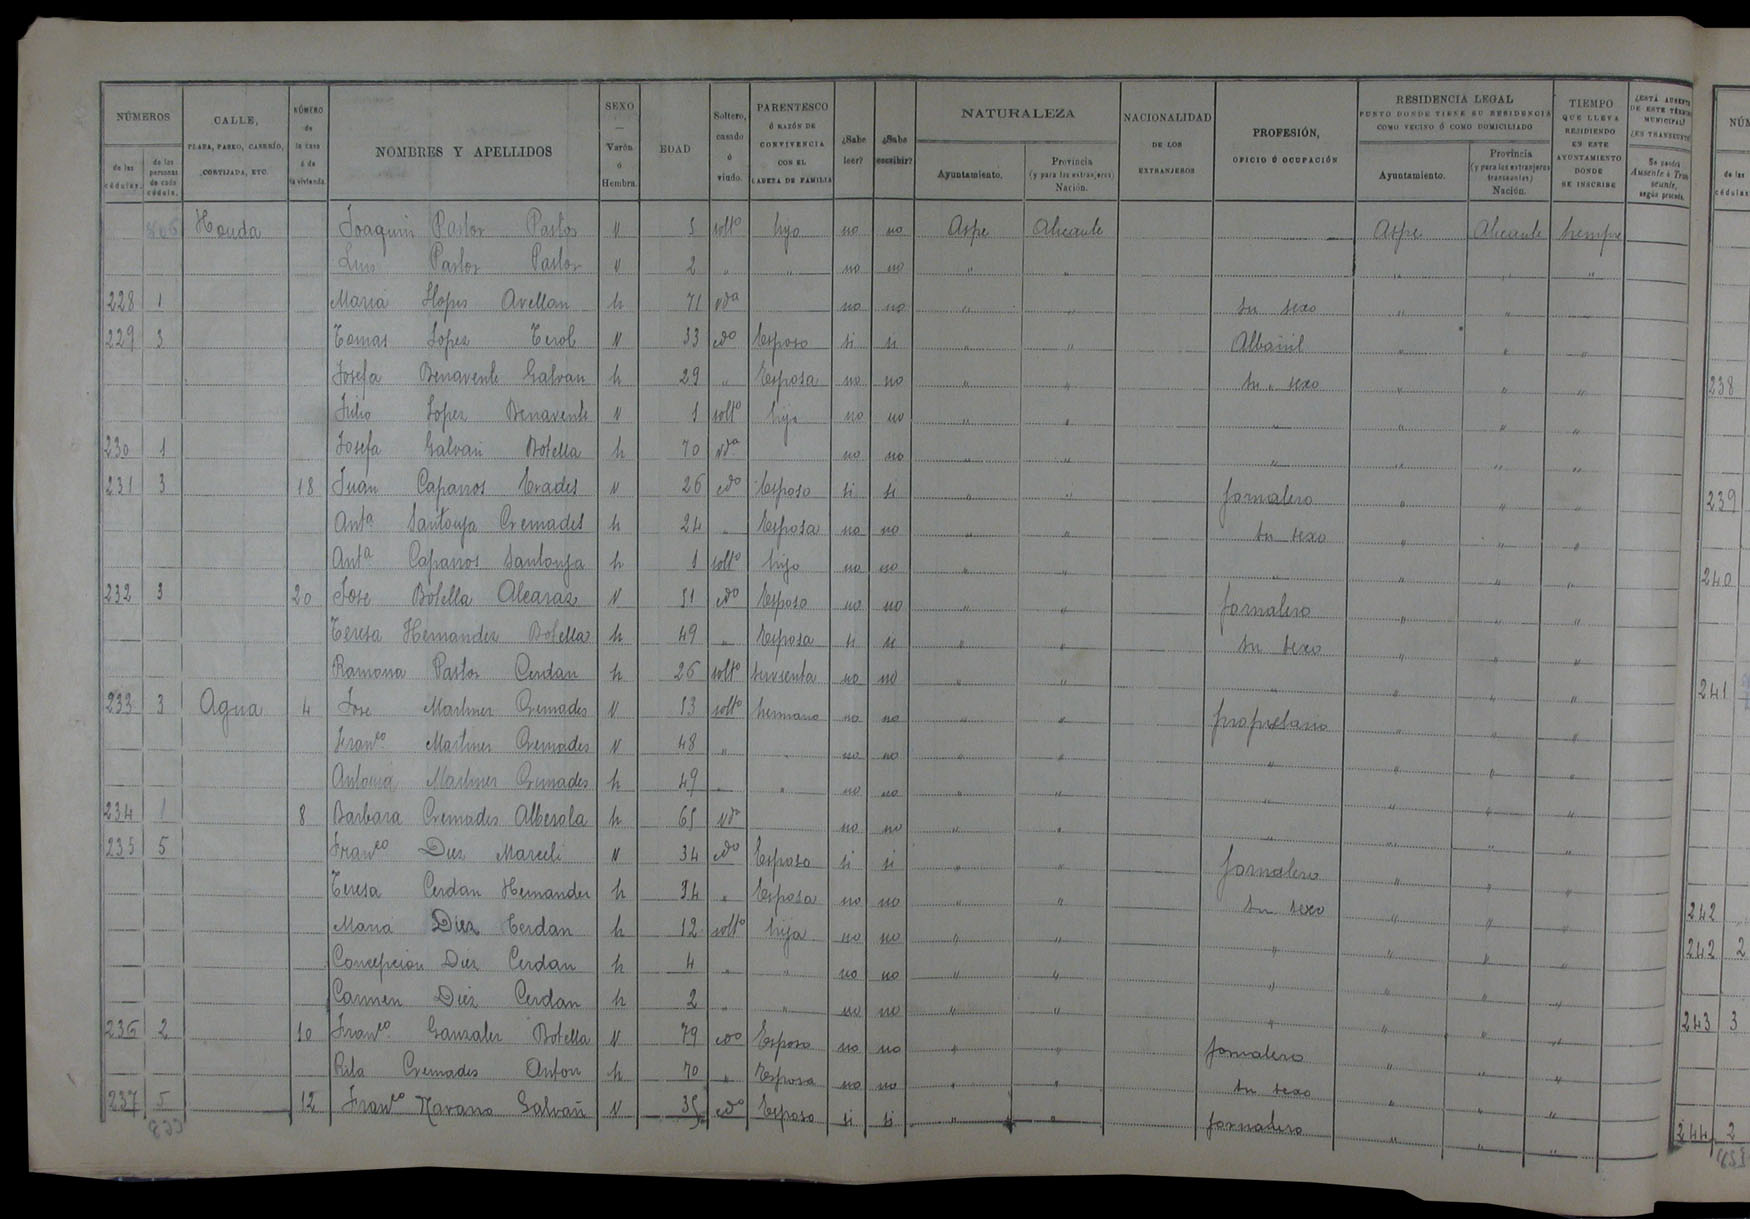 NÚMEROS | CALLE, PLAZA, PASEO, CASERÍO, CORTIJADA, ETC. | NÚMERO de la casa ó de la vivienda. | NOMBRES Y APELLIDOS | SEXO — Varón ó Hembra. | EDAD | Soltero, casado ó viudo. | PARENTESCO Ó RAZÓN DE CONVIVENCIA CON EL CABEZA DE FAMILIA | ¿Sabe leer? | ¿Sabe escribir? | NATURALEZA | NACIONALIDAD DE LOS EXTRANJEROS | PROFESIÓN, OFICIO Ú OCUPACIÓN | RESIDENCIA LEGAL PUNTO DONDE TIENE SU RESIDENCIA COMO VECINO Ó COMO DOMICILIADO | TIEMPO QUE LLEVA RESIDIENDO EN ESTE AYUNTAMIENTO DONDE SE INSCRIBE | ¿ESTÁ AUSENTE DE ESTE TÉRMINO MUNICIPAL?
de las cédulas. | de las personas de cada cédula. | Ayuntamiento. | Provincia (y para los extranjeros) Nación. | Ayuntamiento. | Provincia (y para los extranjeros transeuntes) Nación. | Se pondrá Ausente ó Transeunte, según proceda.
Honda | Joaquin Pastor Pastor | V | 5 | solto | hijo | no | no | Aspe | Alicante | Aspe | Alicante | siempre
Luis Pastor Pastor | V | 2 | " | " | no | no | " | " | " | " | "
228 | 1 | Maria Llopis Avellan | h | 71 | vda | no | no | " | " | su sexo | " | "
229 | 3 | Tomas Lopez Terol | V | 33 | cdo | Esposo | si | si | " | " | Albañil | " | " | "
Josefa Benavente Galvan | h | 29 | " | Esposa | no | no | " | " | su sexo | " | " | "
Julio Lopez Benavente | V | 1 | solto | hijo | no | no | " | " | " | " | " | "
230 | 1 | Josefa Galvan Botella | h | 70 | vda | no | no | " | " | " | " | " | "
231 | 3 | 18 | Juan Caparros Erades | V | 26 | cdo | Esposo | si | si | " | " | Jornalero | " | " | "
Anta Santonja Cremades | h | 24 | " | Esposa | no | no | " | " | su sexo | " | " | "
Anta Caparros Santonja | h | 1 | solto | hija | no | no | " | " | " | " | " | "
232 | 3 | 20 | Jose Botella Alcaraz | V | 51 | cdo | Esposo | no | no | " | " | Jornalero | " | " | "
Teresa Hernandez Botella | h | 49 | " | Esposa | si | si | " | " | su sexo | " | " | "
Ramona Pastor Cerdan | h | 26 | solto | sirvienta | no | no | " | " | " | " | " | "
233 | 3 | Agua | 4 | Jose Martinez Cremades | V | 53 | solto | hermano | no | no | " | " | propietario | " | " | "
Franco Martinez Cremades | V | 48 | " | " | no | no | " | " | " | " | " | "
Antonia Martinez Cremades | h | 49 | " | " | no | no | " | " | " | " | " | "
234 | 1 | 8 | Barbara Cremades Alberola | h | 65 | vda | no | no | " | " | " | " | " | "
235 | 5 | Franco Diez Marceli | V | 34 | cdo | Esposo | si | si | " | " | Jornalero | " | " | "
Teresa Cerdan Hernandez | h | 34 | " | Esposa | no | no | " | " | su sexo | " | " | "
Maria Diez Cerdan | h | 12 | solto | hija | no | no | " | " | " | " | " | "
Concepcion Diez Cerdan | h | 4 | " | " | no | no | " | " | " | " | " | "
Carmen Diez Cerdan | h | 2 | " | " | no | no | " | " | " | " | " | "
236 | 2 | 10 | Franco Gonzalez Botella | V | 79 | cdo | Esposo | no | no | " | " | Jornalero | " | " | "
Rita Cremades Anton | h | 70 | " | Esposa | no | no | " | " | su sexo | " | " | "
237 | 5 | 12 | Franco Navarro Galvañ | V | 35 | cdo | Esposo | si | si | " | " | Jornalero | " | " | "
833
NÚM
de las cédulas
238
239
240
241
242
242 | 2
243 | 3
244 | 2